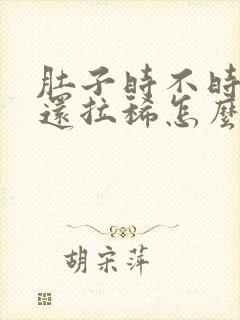 肚子時不時
還拉稀怎麼
胡宗萍